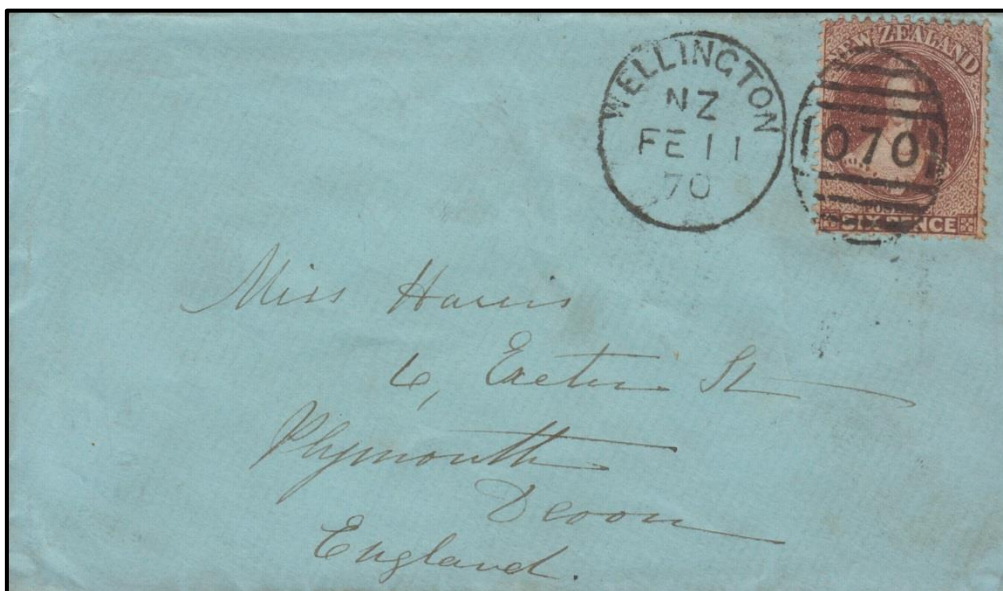 WELLINGTON
NZ
FE 11
70
NEW ZEALAND
070
SIX PENCE
Miss Harris
6, Exeter St
Plymouth
Devon
England.